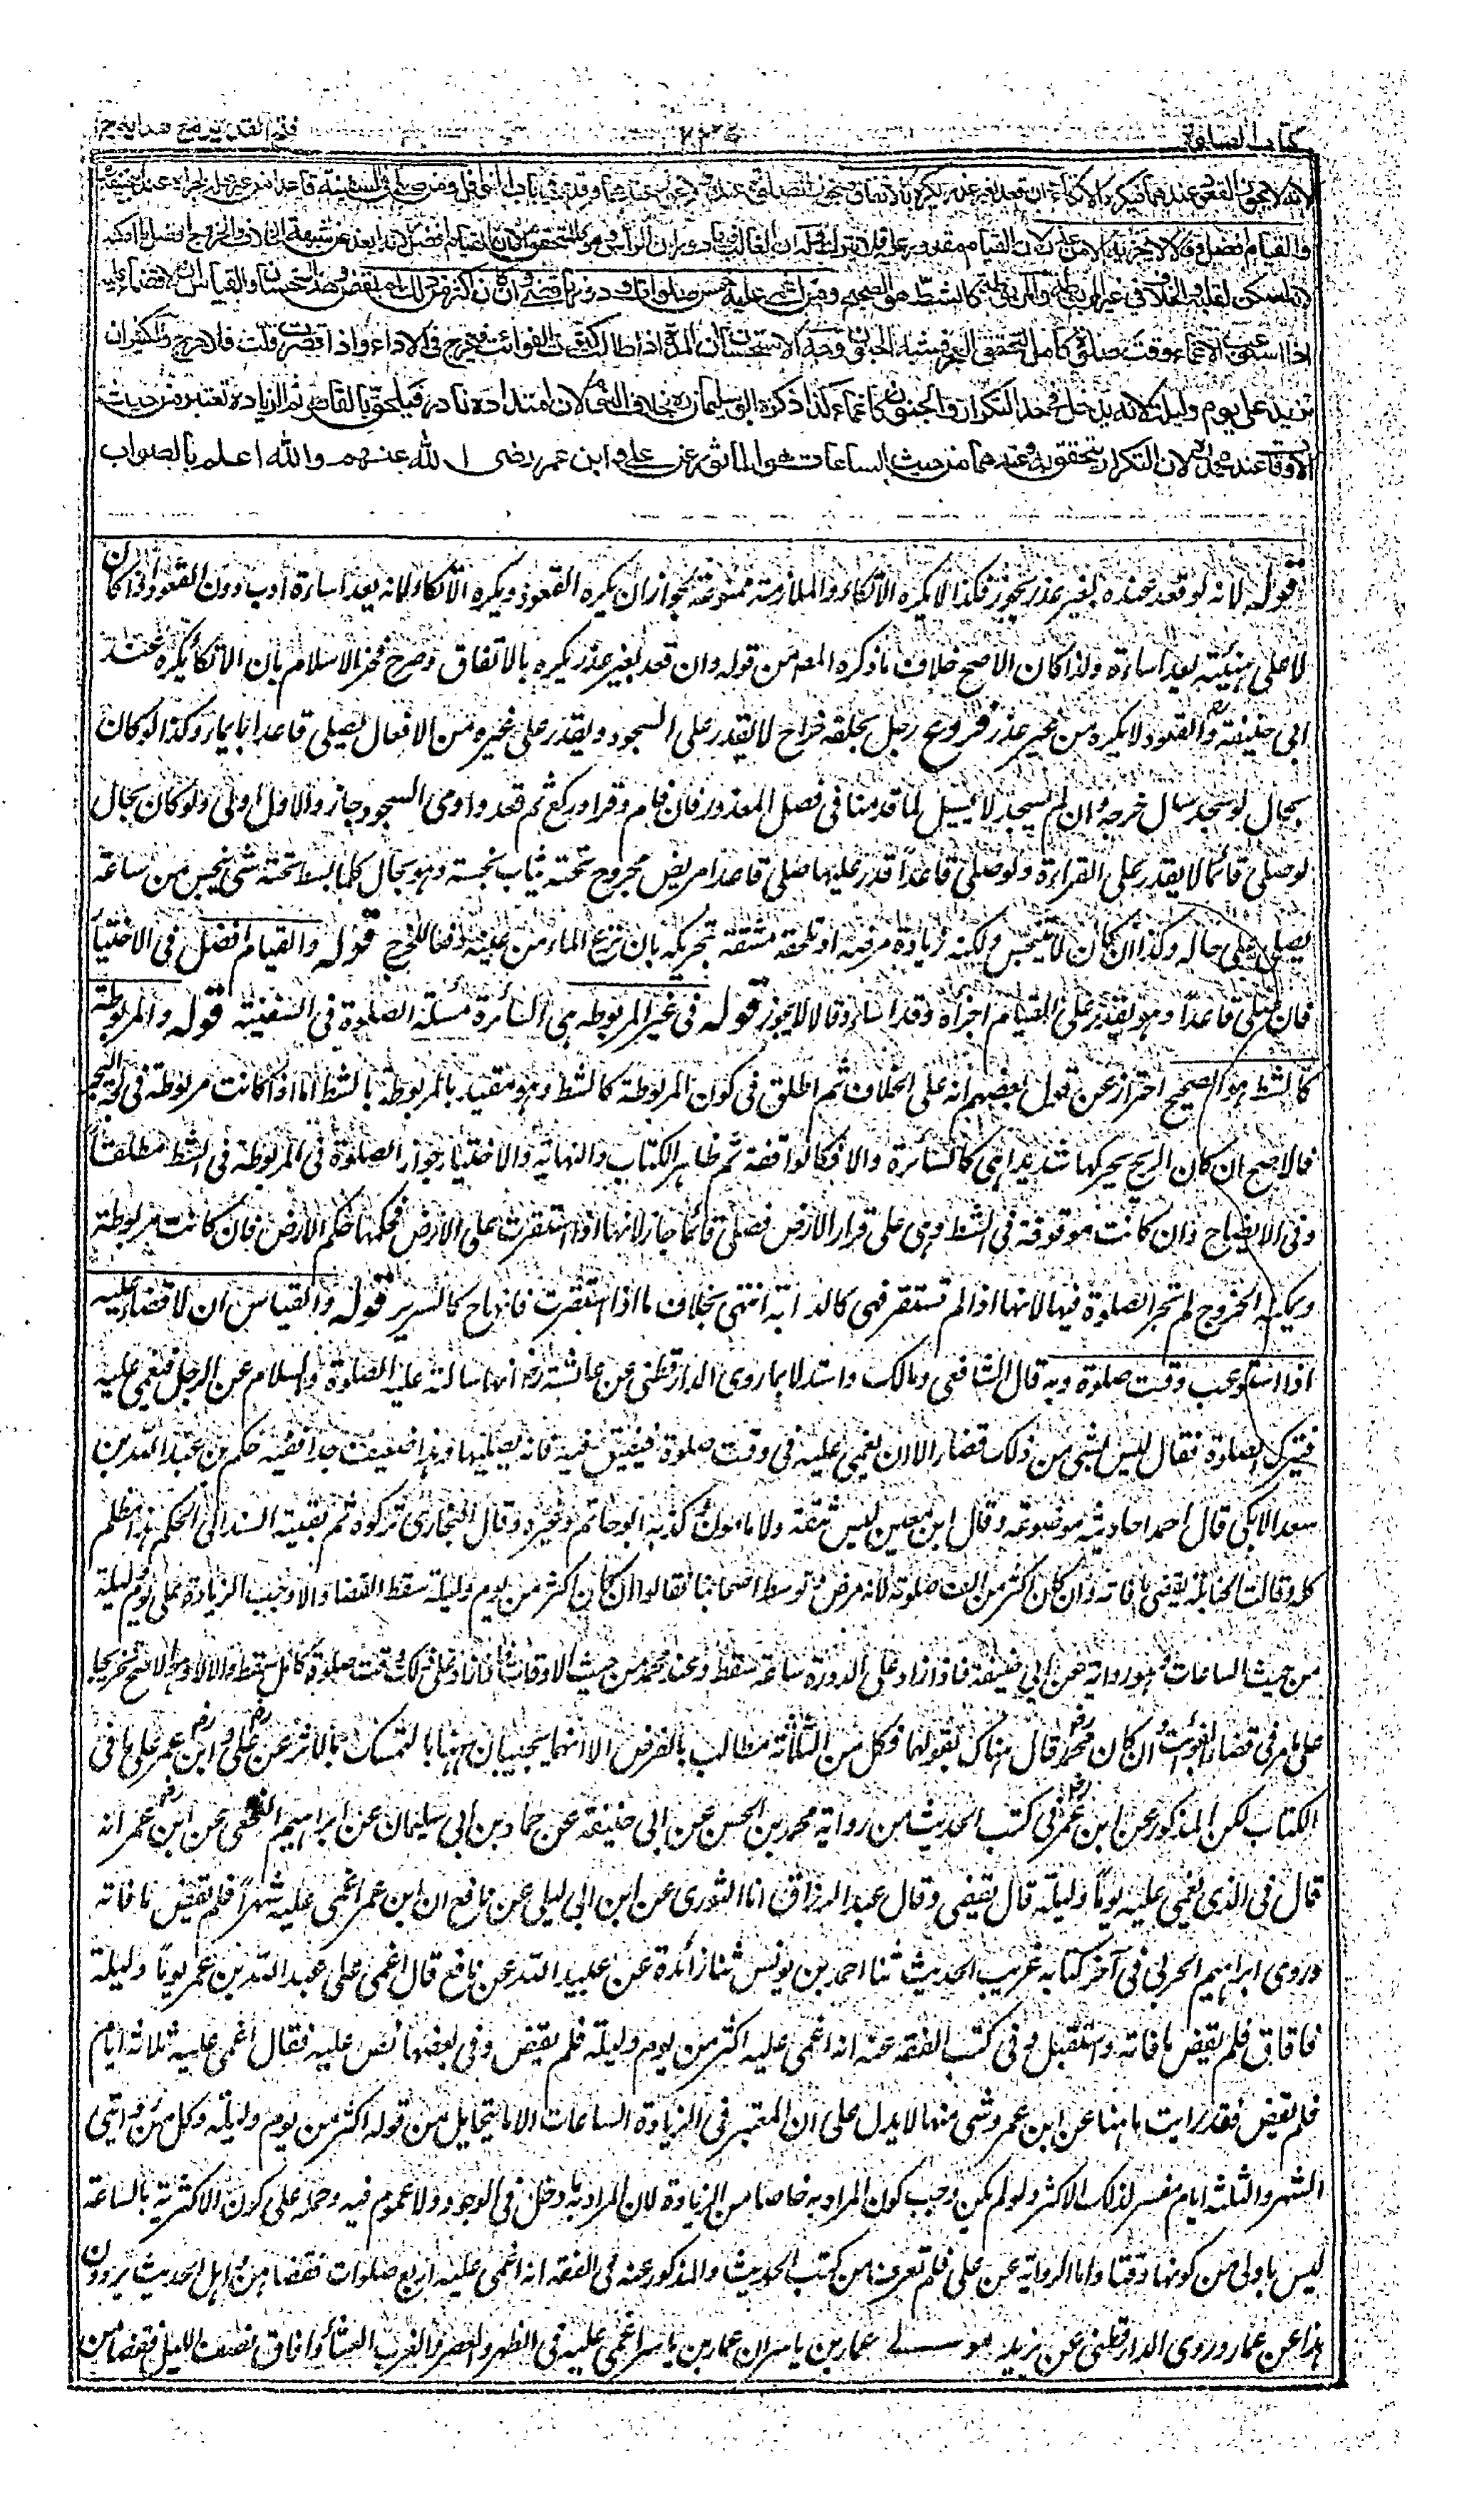 كتاب الصلوة
فتح القدير مع هدايه ج ا
لانه لا يجوز القعود عندهما فيكره الاتكاء وان قعد بغير عذر يكره بالاتفاق وتجوز الصلوة عنده ولا تجوز عندهما وقد مر في باب النوافل ومن صلى في السفينة قاعدا من غير علة اجزاه عند ابي حنيفة
والقيام افضل وقالا لا يجزيه الا من عذر لان القيام مقدور عليه فلا يترك وله ان الغالب فيها دوران الراس وهو كالمتحقق الا ان القيام افضل لانه ابعد عن شبهة الخلاف والخروج افضل ما امكنه
لانه اسكن لقلبه والخلاف في غير المربوطة والمربوطة كالشط هو الصحيح ومن اغمي عليه خمس صلوات او دونها قضى وان كان اكثر من ذلك لم يقض وهذا استحسان والقياس ان لا قضاء عليه
اذا استوعب الاغماء وقت صلوة كامل لتحقق العجز فشبه الجنون وجه الاستحسان ان المدة اذا طالت كثرت الفوائت فيحرج في الاداء واذا قصرت قلت فلا حرج والكثير ان
تزيد على يوم وليلة لانه يدخل في حد التكرار والجنون كالاغماء كذا ذكره ابو سليمان ره بخلاف النوم لان امتداده نادر فيلحق بالقاصر ثم الزيادة تعتبر من حيث
الاوقات عند محمد ره لان التكرار يتحقق به وعندهما من حيث الساعات هو الماثور عن علي و ابن عمر رضى الله عنهم والله اعلم بالصواب
قوله لانه لو قعد عنده بغير عذر يجوز فكذا لا يكره الاتكاء والملازمة ممنوعة لجواز ان يكره القعود ويكره الاتكاء لانه يعد اساءة ادب دون القعود اذا كان
لا على هيئته يعد اساءة ولذا كان الاصح خلاف ما ذكره المصه من قوله وان قعد بغير عذر يكره بالاتفاق وصرح فخر الاسلام بان الاتكاء يكره عند
ابى حنيفة رح والقعود لا يكره من غير عذر فروع رجل بحلقه خراج لا يقدر على السجود ويقدر على غيره من الافعال يصلى قاعدا بايماء وكذا لو كان
بحال لو سجد سال خرجه وان لم يسجد لا يسيل لما قدمنا فى فصل المعذور فان قام وقرا وركع ثم قعد واومى السجود جاز والاول اولى ولو كان بحال
لو صلى قائما لا يقدر على القراءة ولو صلى قاعدًا قدر عليها صلى قاعدا مريض مجروح تحته ثياب نجسة وهو بحال كلما بسط تحته شئ ينجس من ساعة
يصلى على حاله وكذا ان كان لا يتنجس ولكنه زيادة مرضه او تلحقه مشقة بتحريكه بان نزع الماء من عينه دفعا للحرج قوله والقيام افضل فى الاختيار
فان صلى قاعدًا وهو يقدر على القيام اجزأه وقد اساء وقالا لا يجوز قوله فى غير المربوطه هى السائرة مسئلة الصلوة فى السفينة قوله والمربوطة
كالشط هو الصحيح احتراز عن قول بعضهم انه على الخلاف ثم اطلق فى كون المربوطة كالشط وهو مقيد بالمربوطة بالشط اما اذا كانت مربوطة فى لجة البحر
فالاصح ان كان الريح يحركها شديدا هى كالسائرة والا فكالواقفة ثم ظاهر الكتاب والنهاية والاختيار جواز الصلوة فى المربوطة فى الشط مطلقًا
وفى الايضاح وان كانت موقوفة فى الشط وهى على قرار الارض فصلى قائما جاز لانها اذا استقرت على الارض فحكمها حكم الارض فان كانت مربوطة
ويمكنه الخروج لم تجز الصلوة فيها لانها اذا لم تستقر فهى كالدابة انتهى بخلاف ما اذا استقرت فانها ح كالسرير قوله والقياس ان لا قضاء عليه
اذا استوعب وقت صلوة وبه قال الشافعى ومالك واستدلا بما روى الدارقطنى عن عائشة رض انها سالته عليه الصلوة والسلام عن الرجل يغمى عليه
فيترك الصلوة فقال ليس بشئ من ذلك قضاء الا ان يغمى عليه فى وقت صلوة فيفيق فيه فانه يصليها وهذا ضعيف جدا ففيه حكم بن عبد الله بن
سعد الايلى قال احمد احاديثه موضوعة وقال ابن معين ليس بثقة ولا مامون وكذبه ابو حاتم وغيره وقال البخارى تركوه ثم بقية السند الى الحكم هذا مظلم
كله وقالت الحنابلة يقضى ما فاته وان كان اكثر من الف صلوة لانه مرض وتوسط اصحابنا فقالوا ان كان اكثر من يوم وليلة سقط القضاء والا وجب الزيادة على يوم وليلة
من حيث الساعات وهو رواية عن ابى حنيفة فاذا زاد على الدورة ساعة سقط وعند محمد من حيث الاوقات فاذا زاد على ذلك وقت صلوة كامل سقط والا لا وهو الاصح تخريجا
على ما مر فى قضاء الفوائت وان كان محمد رح قال هناك بقولهما فكل من الثلاثة مطالب بالفرق الا انهما يجيبان ههنا بالتمسك بالاثر عن على و ابن عمر على ما فى
الكتاب لكن المذكور عن ابن عمر فى كتب الحديث من رواية محمد بن الحسن عن ابى حنيفة عن حماد بن ابى سليمان عن ابراهيم النخعى عن ابن عمر انه
قال فى الذى يغمى عليه يومًا وليلة قال يقضى وقال عبد الرزاق انا الثورى عن ابن ابى ليلى عن نافع ان ابن عمر اغمى عليه شهرًا فلم يقض ما فاته
وروى ابراهيم الحربى فى آخر كتابه غريب الحديث ثنا احمد بن يونس ثنا زائدة عن عبيد الله عن نافع قال اغمى على عبد الله بن عمر يومًا وليلة
فافاق فلم يقض ما فاته واستقبل وفى كتب الفقه عنه انه اغمى عليه اكثر من يوم وليلة فلم يقض وفى بعضها نص عليه فقال اغمى عليه ثلاثة ايام
فلم يقض فقد رايت ما هنا عن ابن عمر وشئ منها لا يدل على ان المعتبر فى الزيادة الساعات الا ما يتخايل من قوله اكثر من يوم وليلة وكل من روايتى
الشهر والثلثة ايام مفسر لذلك الاكثر ولو لم يكن وجب كون المراد به خاصا من الزيادة لان المراد به ما دخل فى الوجود ولا عموم فيه وحمله على كون الاكثرية بالساعة
ليس باولى من كونها وقتا واما الرواية عن على فلم تعرف من كتب الحديث والمذكور عنه فى الفقه انه اغمى عليه اربع صلوات فقضاهن واهل الحديث يروون
هذا عن عمار وروى الدارقطنى عن يزيد مولى عمار بن ياسر ان عمار بن ياسر اغمى عليه فى الظهر والعصر والمغرب والعشاء وافاق نصف الليل فقضاهن